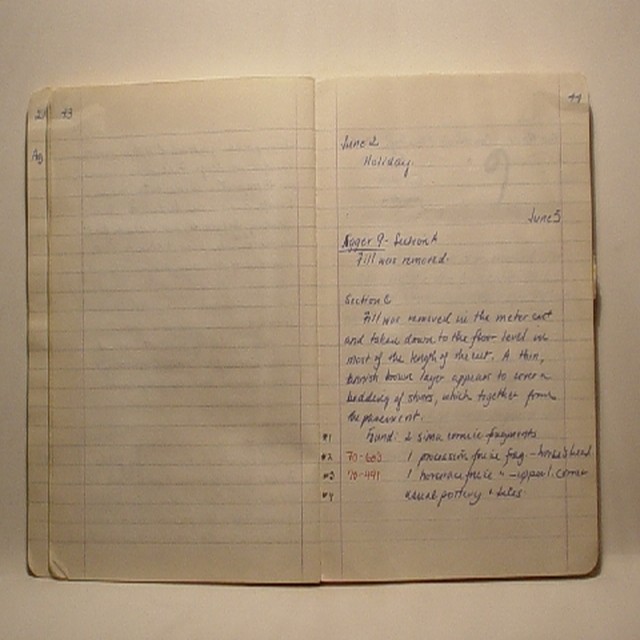 43
44
June 2
Holiday.
June 5
Agger 9 - Section A
Fill was removed.
Section C
Fill was removed in the meter cut
and taken down to the floor level in
most of the length of the cut. A thin,
brown layer appears to cover a
bedding of stones, which together form
the pavement.
#1 Found: 2 sima cornice fragments
#2 70-603 1 procession frieze frag - horse's head
#3 70-491 1 horserace frieze " - upper l. corner
#4 usual pottery + tiles